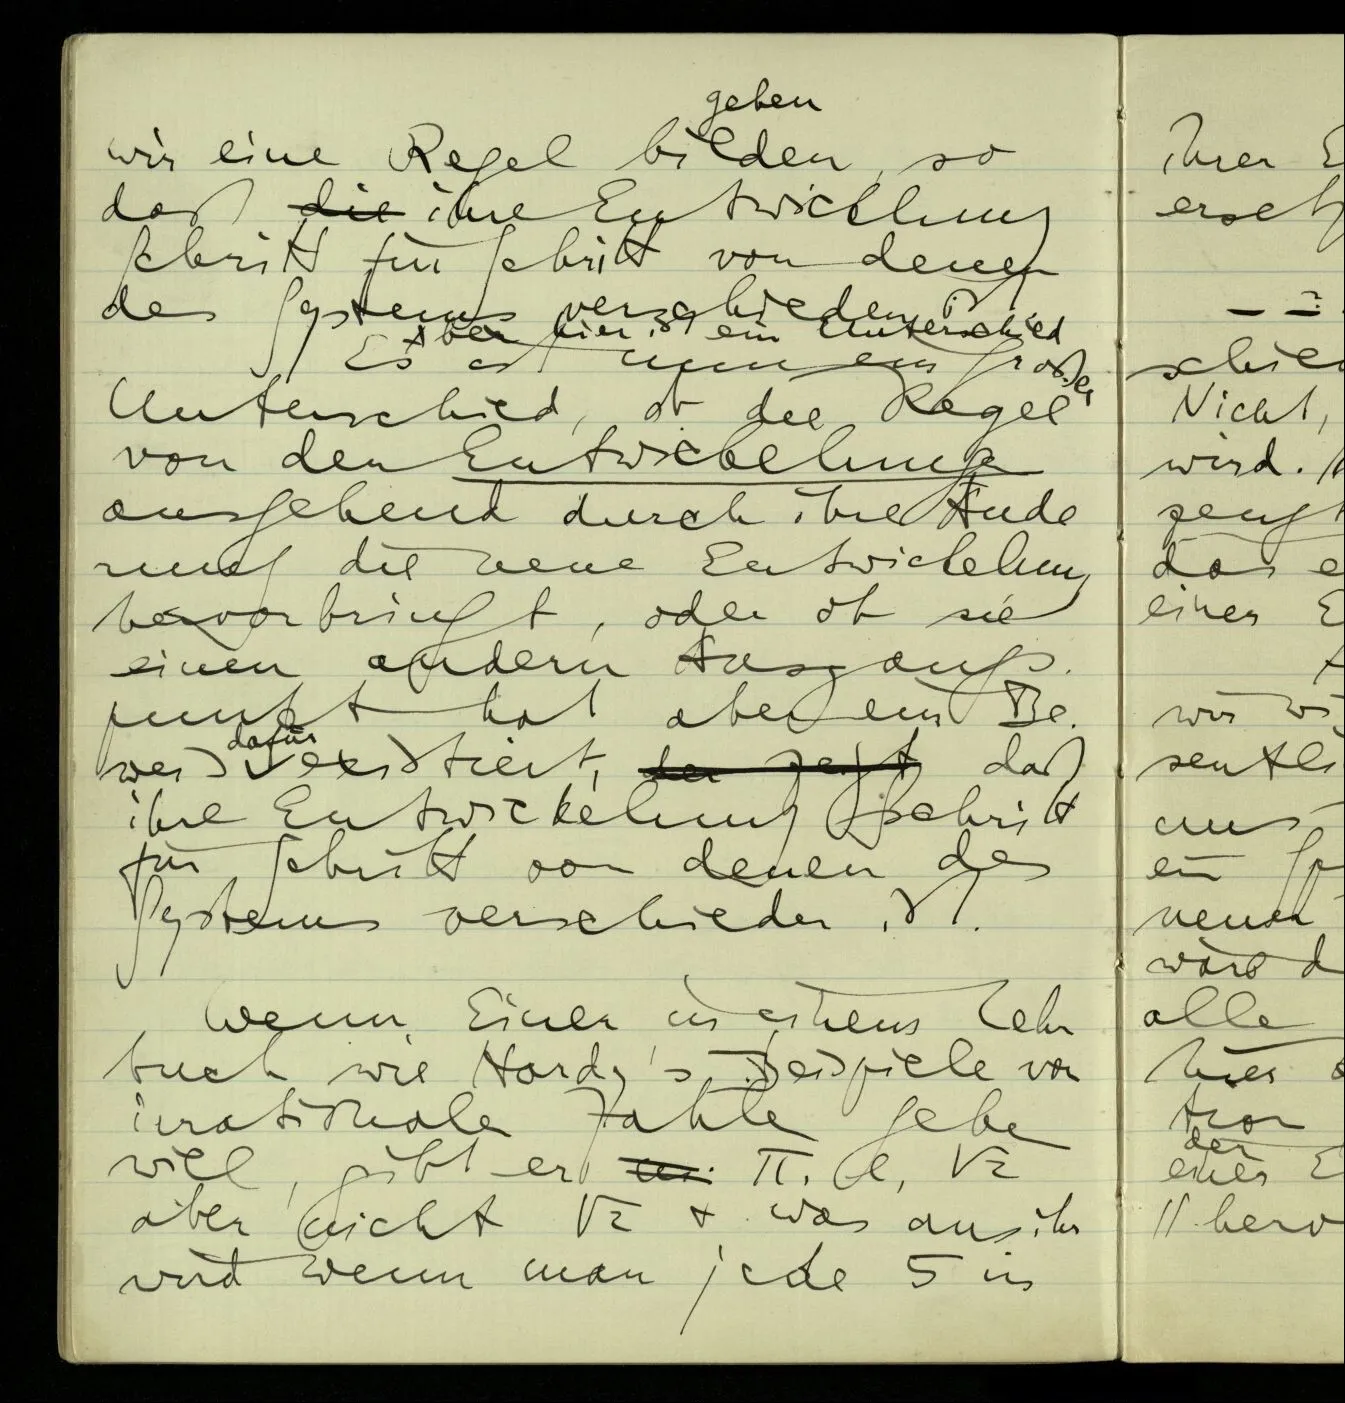 geben
wir eine Regel bilden, so
daß die ihre Entwicklung
Schritt für Schritt von denen
des Systems verschieden ist
Aber hier ist ein Unterschied
Es ist nun ein großer
Unterschied, ob die Regel
von den Entwickelungen
ausgehend durch ihre Ände
rung die neue Entwickelung
hervorbringt, oder ob sie
einen andern Ausgangs-
punkt hat aber ein Be-
dafür
weis existiert, der zeigt daß
ihre Entwickelung Schritt
für Schritt von denen des
Systems verschieden ist.
Wenn Einer in einem Lehr
buch wie Hardy's Beispiele von
irrationale Zahle geben
will, gibt er π, e, √2
aber nicht √2 + was aus ihr
wird wenn man jede 5 in
ihrer E
ersetz
schied
Nicht,
wird.
zeugt
das e
einer E
wir wi
sentli
uns
ein
neuen
wäre d
alle
hier
tion
der
einer E
π hervo